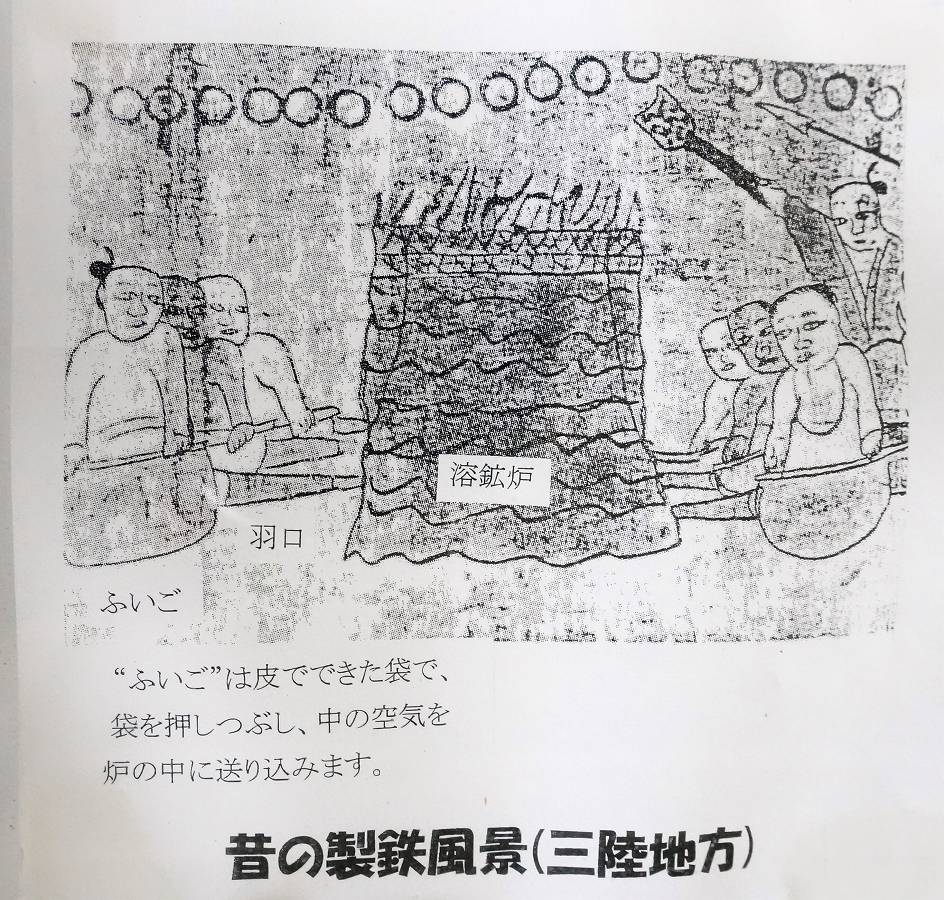 溶鉱炉
羽口
ふいご
“ふいご”は皮でできた袋で、
袋を押しつぶし、中の空気を
炉の中に送り込みます。
昔の製鉄風景(三陸地方)